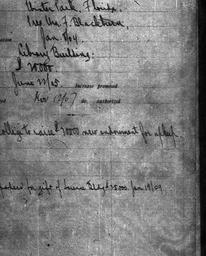 Winter Park, Florida.
Wm. F. Blackburn,
Jan. 8/04.
Library Building.
$ 20,000
June 22/05 Increase promised
Nov 12/07 do. authorized
college to raise $ 20000 new endowment for upkeep.
for gift of Science Bldg $ 25000. Jan 19/09